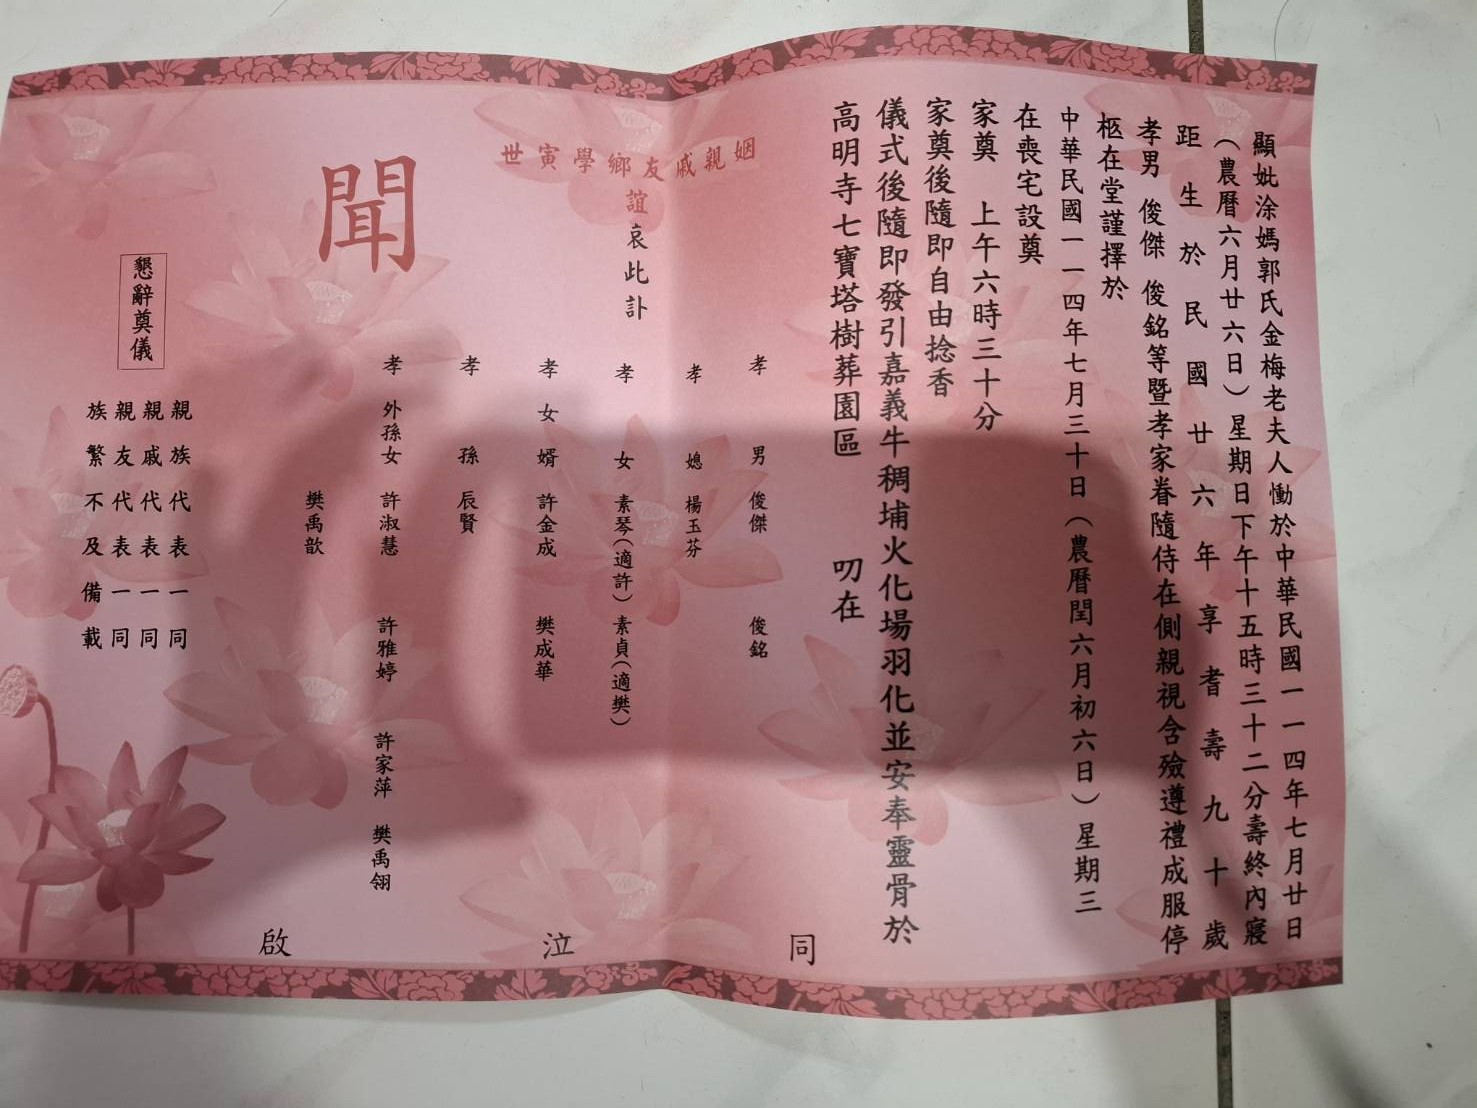 顯妣涂媽郭氏金梅老夫人慟於中華民國一一四年七月廿日
（農曆六月廿六日）星期日下午十五時三十二分壽終內寢
距生於民國廿六年享耆壽九十歲
孝男 俊傑 俊銘等暨孝家眷隨侍在側親視含殮遵禮成服停
柩在堂謹擇於
中華民國一一四年七月三十日（農曆閏六月初六日）星期三
在喪宅設奠
家奠 上午六時三十分
家奠後隨即自由捻香
儀式後隨即發引嘉義牛稠埔火化場羽化並安奉靈骨於
高明寺七寶塔樹葬園區 叨在
姻親戚友鄉學寅世
誼哀此訃
聞
孝男 俊傑 俊銘
孝媳 楊玉芬
孝女 素琴（適許）素貞（適樊）
孝女婿 許金成 樊成華
孝孫 辰賢
孝外孫女 許淑慧 許雅婷 許家萍 樊禹翎
樊禹歆
同泣啟
懇辭奠儀
親族代表一同
親戚代表一同
親友代表一同
族繁不及備載